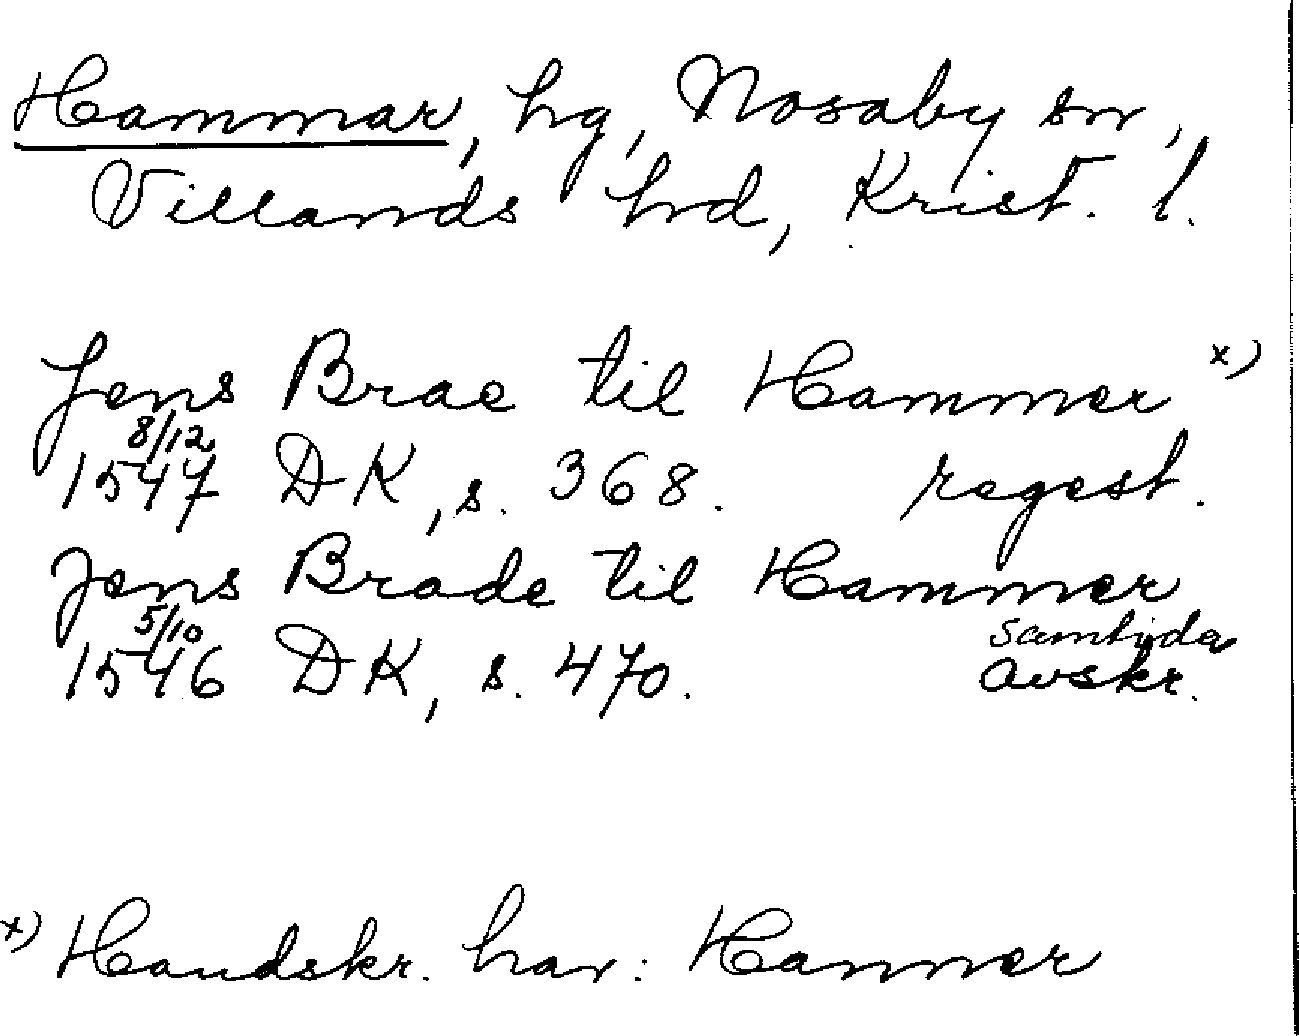 Hammar, hg, Nosaby sn,
Villands hd, Krist. l.
Jens Brae til Hammer x)
8/12
1547 DK, s. 368. regest.
Jens Brade til Hammer
5/10 samtida
1546 DK, s. 470. avskr.
x) Handskr. har: Hanner